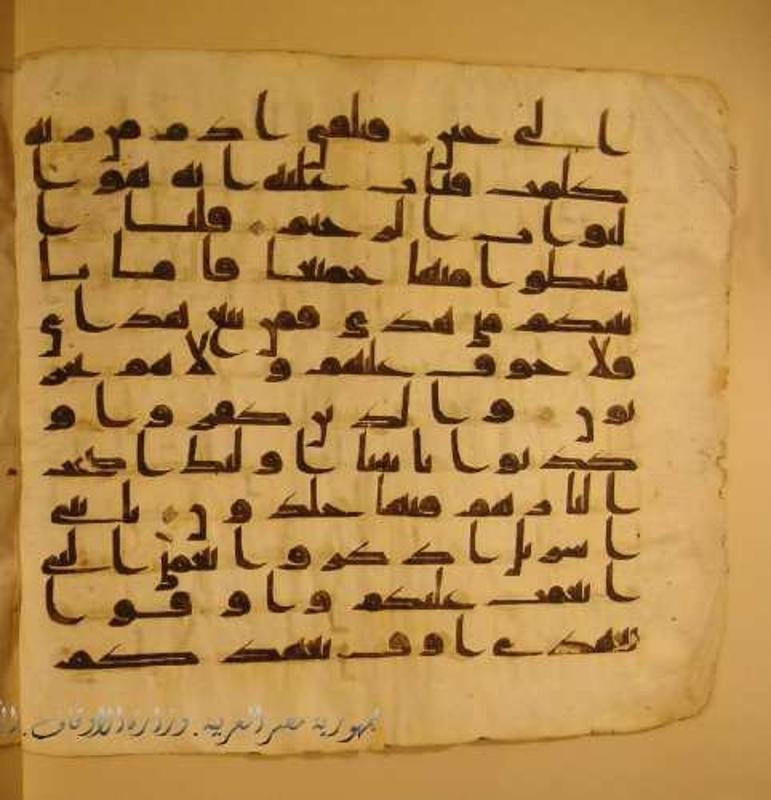 الى حين فتلقى ادم من ربه
كلمت فتاب عليه انه هو ا
لتواب الرحيم قلنا ا
هبطوا منها جميعا فاما يا
تينكم من هدى فمن تبع هداى
فلا خوف عليهم ولا هم يحز
نون والذين كفروا و
كذبوا بايتنا اولئك اصحب
النار هم فيها خلدون يبنى
اسريل اذكروا نعمتى التى
انعمت عليكم واوفوا
بعهدى اوف بعهدكم
جمهورية مصر العربية . وزارة الأوقاف .